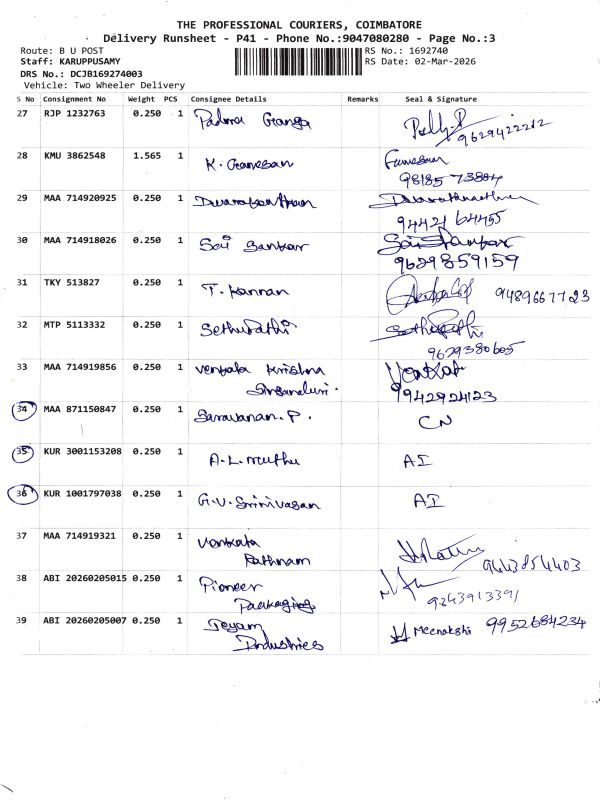 THE PROFESSIONAL COURIERS, COIMBATORE
Delivery Runsheet - P41 - Phone No.:9047080280 - Page No.:3
Route: B U POST RS No.: 1692740
Staff: KARUPPUSAMY RS Date: 02-Mar-2026
DRS No.: DCJB169274003
Vehicle: Two Wheeler Delivery
S No Consignment No Weight PCS Consignee Details Remarks Seal & Signature
27 RJP 1232763 0.250 1 Padma Ganga
9629422212
28 KMU 3862548 1.565 1 K. Ganesan Ganesan
98185 73884
29 MAA 714920925 0.250 1
94421 64455
30 MAA 714918026 0.250 1 Sai Sankar Sai Sankar
9629859159
31 TKY 513827 0.250 1 T. Kannan 9489667723
32 MTP 5113332 0.250 1 Sethupathi Sethupathi
9629380605
33 MAA 714919856 0.250 1 Venkata Krishna Venkat
9942924123
34 MAA 871150847 0.250 1 Saravanan. P. CN
35 KUR 3001153208 0.250 1 A. L. Muthu AI
36 KUR 1001797038 0.250 1 G. V. Srinivasan AI
37 MAA 714919321 0.250 1 Venkata
Rathnam 9443854403
38 ABI 20260205015 0.250 1 Pioneer
Packaging 9243913391
39 ABI 20260205007 0.250 1 Jeyam Meenakshi 9952684234
Industries